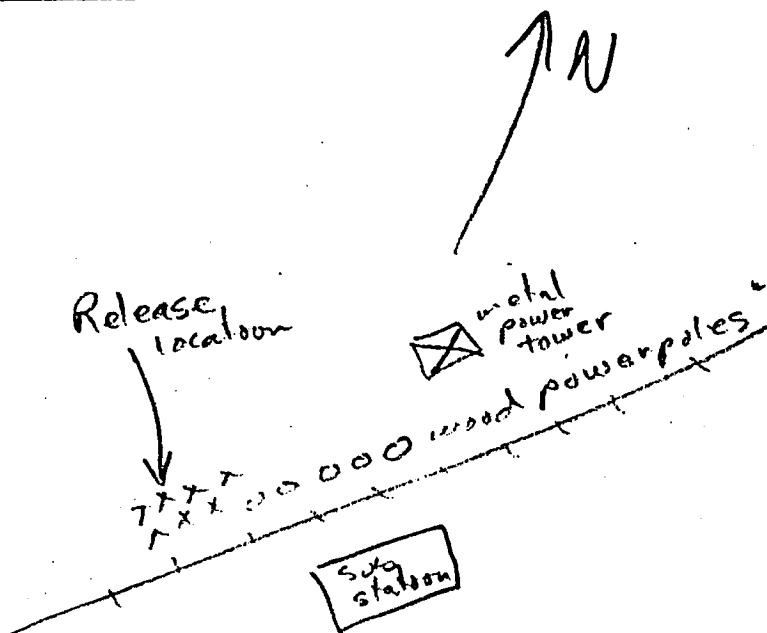 N
Release
location
metal
power
tower
wood power poles
station